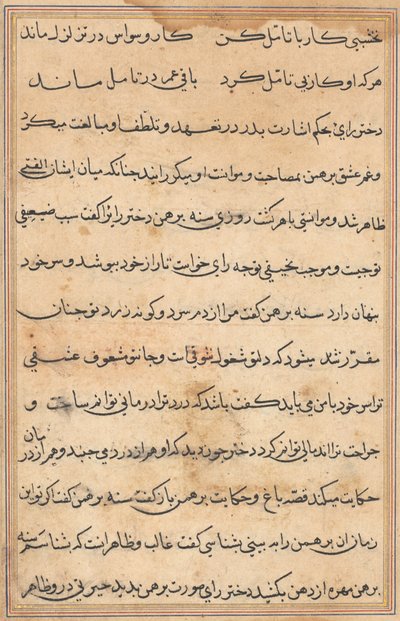 نخشبی کار با تامل کن کار وسواس در تزلزل ماند
هر که او کار بی تامل کرد باقی عمر در تامل ماند
دختر رای بحکم اشارت پدر در تعهد و تلطف او مبالغت میکرد
و غم عشق برهمن بمصاحبت و موانست او میکرد رانید چنانکه میان ایشان الفتی
ظاهر شد و موانستی باهر گشت روزی سنه برهمن دختر رایرا گفت سبب ضعیفی
تو چیست و موجب نحیفی تو چه رای خواست تا راز خود بپوشد و سر خود
پنهان دارد سنه برهمن گفت مرا از دم سرد و کونه زرد تو چنان
مقرر شد میشود که دل تو مشغول شوقی است و جان تو مشعوف عشقی
تو سر خود با من می باید گفت باشد که درد ترا درمانی توانم ساخت و
جراحت ترا اندمالی توانم کرد دختر چون دید که او هم از درد می جنبد و هم از درمان
حکایت میکند قصه باغ و حکایت برهمن باز گفت سنه برهمن گفت اگر تو این
زمان آن برهمن را به بینی بشناسی گفت غالب و ظاهر انست که بشناسم سنه
برهمن مهره از دهن بکشید دختر رای صورت برهمن بدید حیرتی در و ظاهر